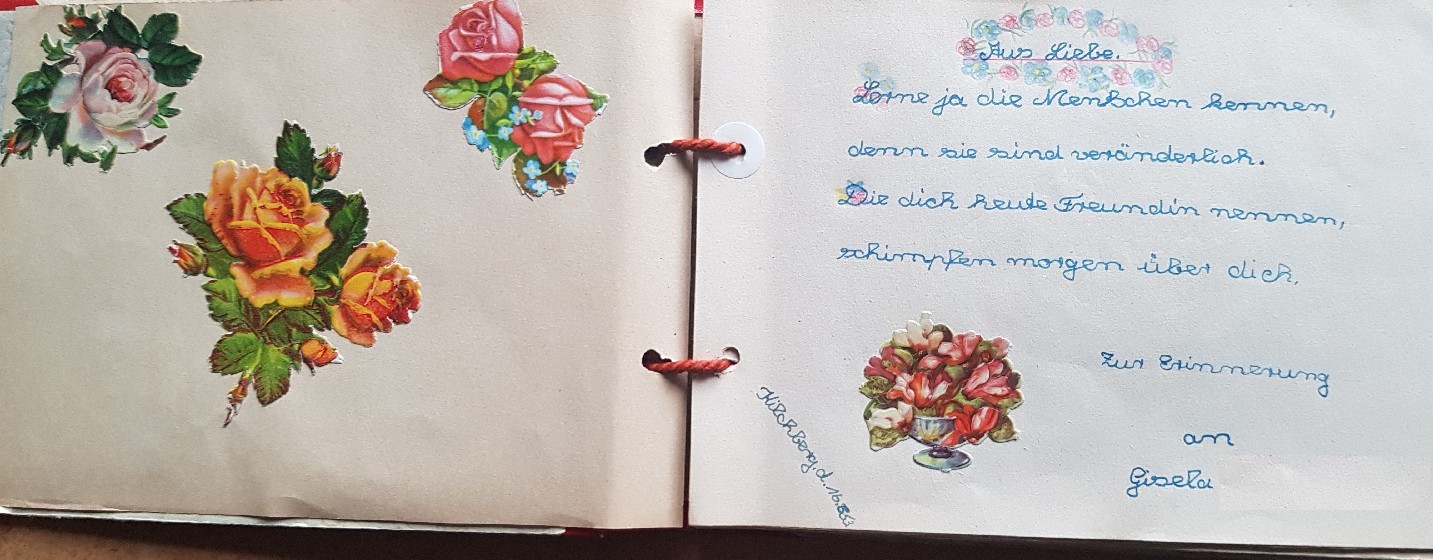 Aus Liebe.
Lerne ja die Menschen kennen,
denn sie sind veränderlich.
Die dich heute Freundin nennen,
schimpfen morgen über dich.
Zur Erinnerung
an
Gisela
Kirchberg, d. 16.